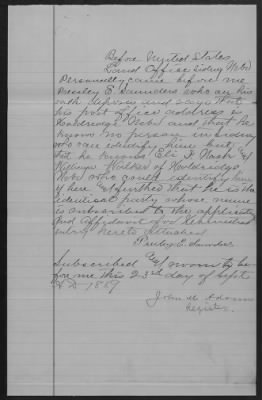 Before United States
Land Office Sidney Nebr
Personally came before me
Presley E Saunders who on his
oath deposes and says that
his post office address is
Holdredge Nebr and that he
knows no person in Sidney
who can identify him but
that he knows Eli F Nash &
William of Holdredge
Nebr who could identify him
if here & further that he is the
identical party whose name
is subscribed to the application
and affidavit for Homestead
entry hereto attached
Presley E. Saunders
Subscribed & sworn to be-
fore me this 23rd day of Sept
AD 1889
John M Adams
Register